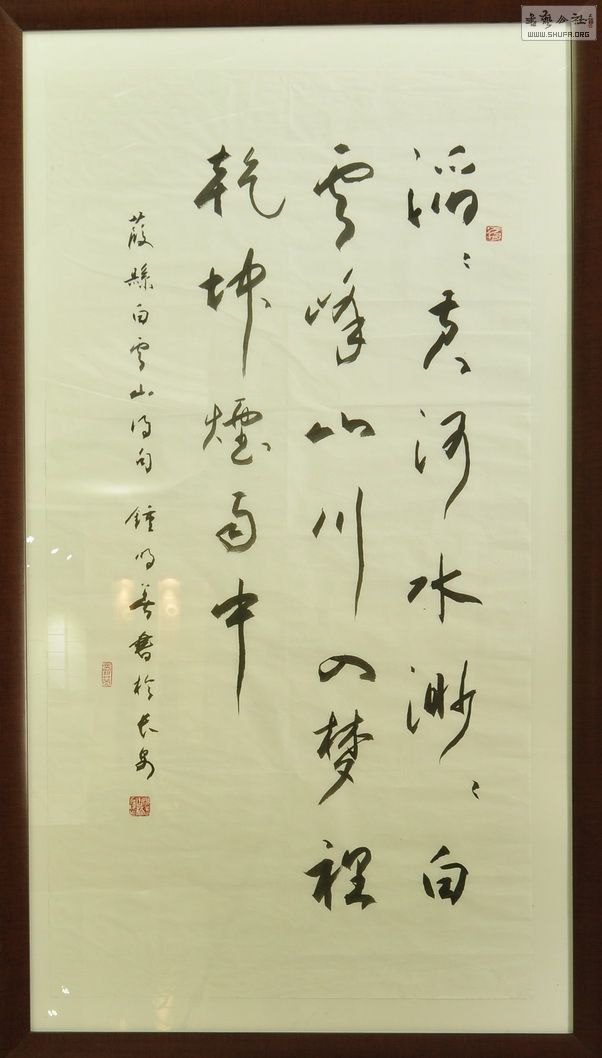 滔〻黄河水渺〻白
雲峰山川入梦裡
乾坤煙雨中
葭縣白雲山得句 鍾明善書於長安
書藝公社
WWW.SHUFA.ORG